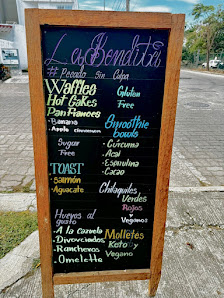 La Bendita
#Pecado Sin Culpa
Waffles
Hot Cakes
Pan Frances
- Banano
- Apple cinnamon
Gluten
Free
Sugar
Free
Smoothie
bowls
- Cúrcuma
- Açai
- Espirulina
- Cacao
TOAST
- Salmón
- Aguacate
Chilaquiles
Verdes
Rojos
y
Veganos
Huevos al
gusto
- A la cazuela
- Divorciados
- Rancheros
- Omelette
Molletes
Keto y
Vegano